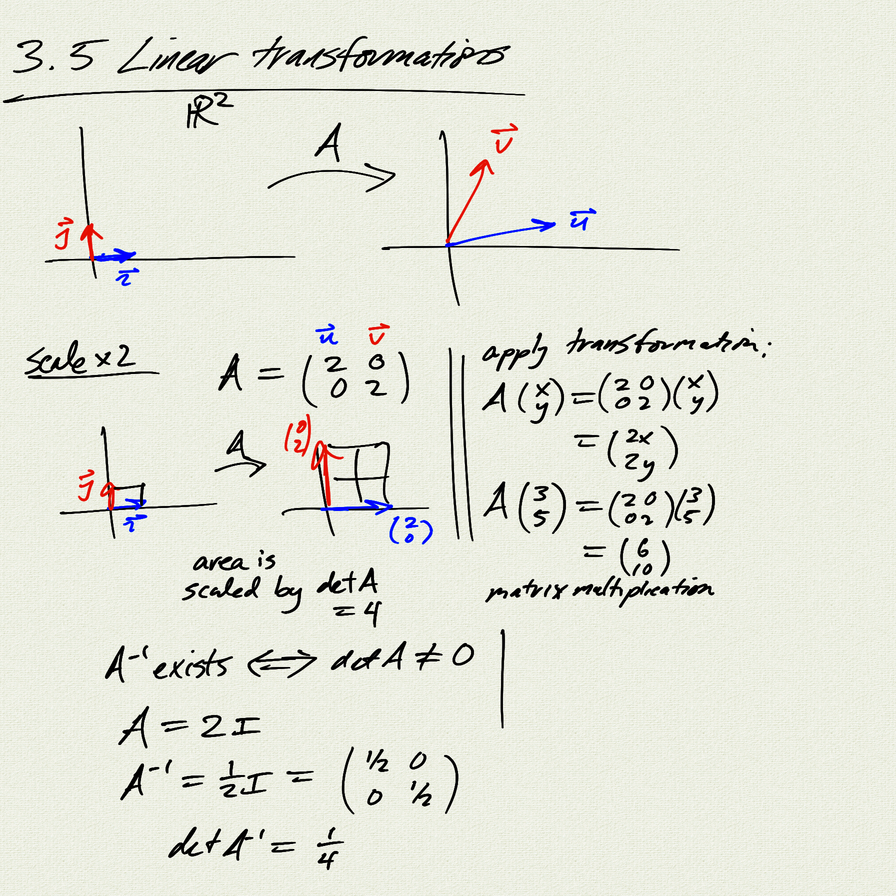 3.5 Linear transformations
ℝ²
A
j⃗
i⃗
v⃗
u⃗
scale ×2
u⃗ v⃗
A = (2 0
0 2)
j⃗
i⃗
A
(0
2)
(2
0)
area is
scaled by det A
= 4
apply transformation:
A (x
y) = (2 0
0 2)(x
y)
= (2x
2y)
A (3
5) = (2 0
0 2)(3
5)
= (6
10)
matrix multiplication
A⁻¹ exists ⟺ det A ≠ 0
A = 2I
A⁻¹ = 1/2 I = (1/2 0
0 1/2)
det A⁻¹ = 1/4